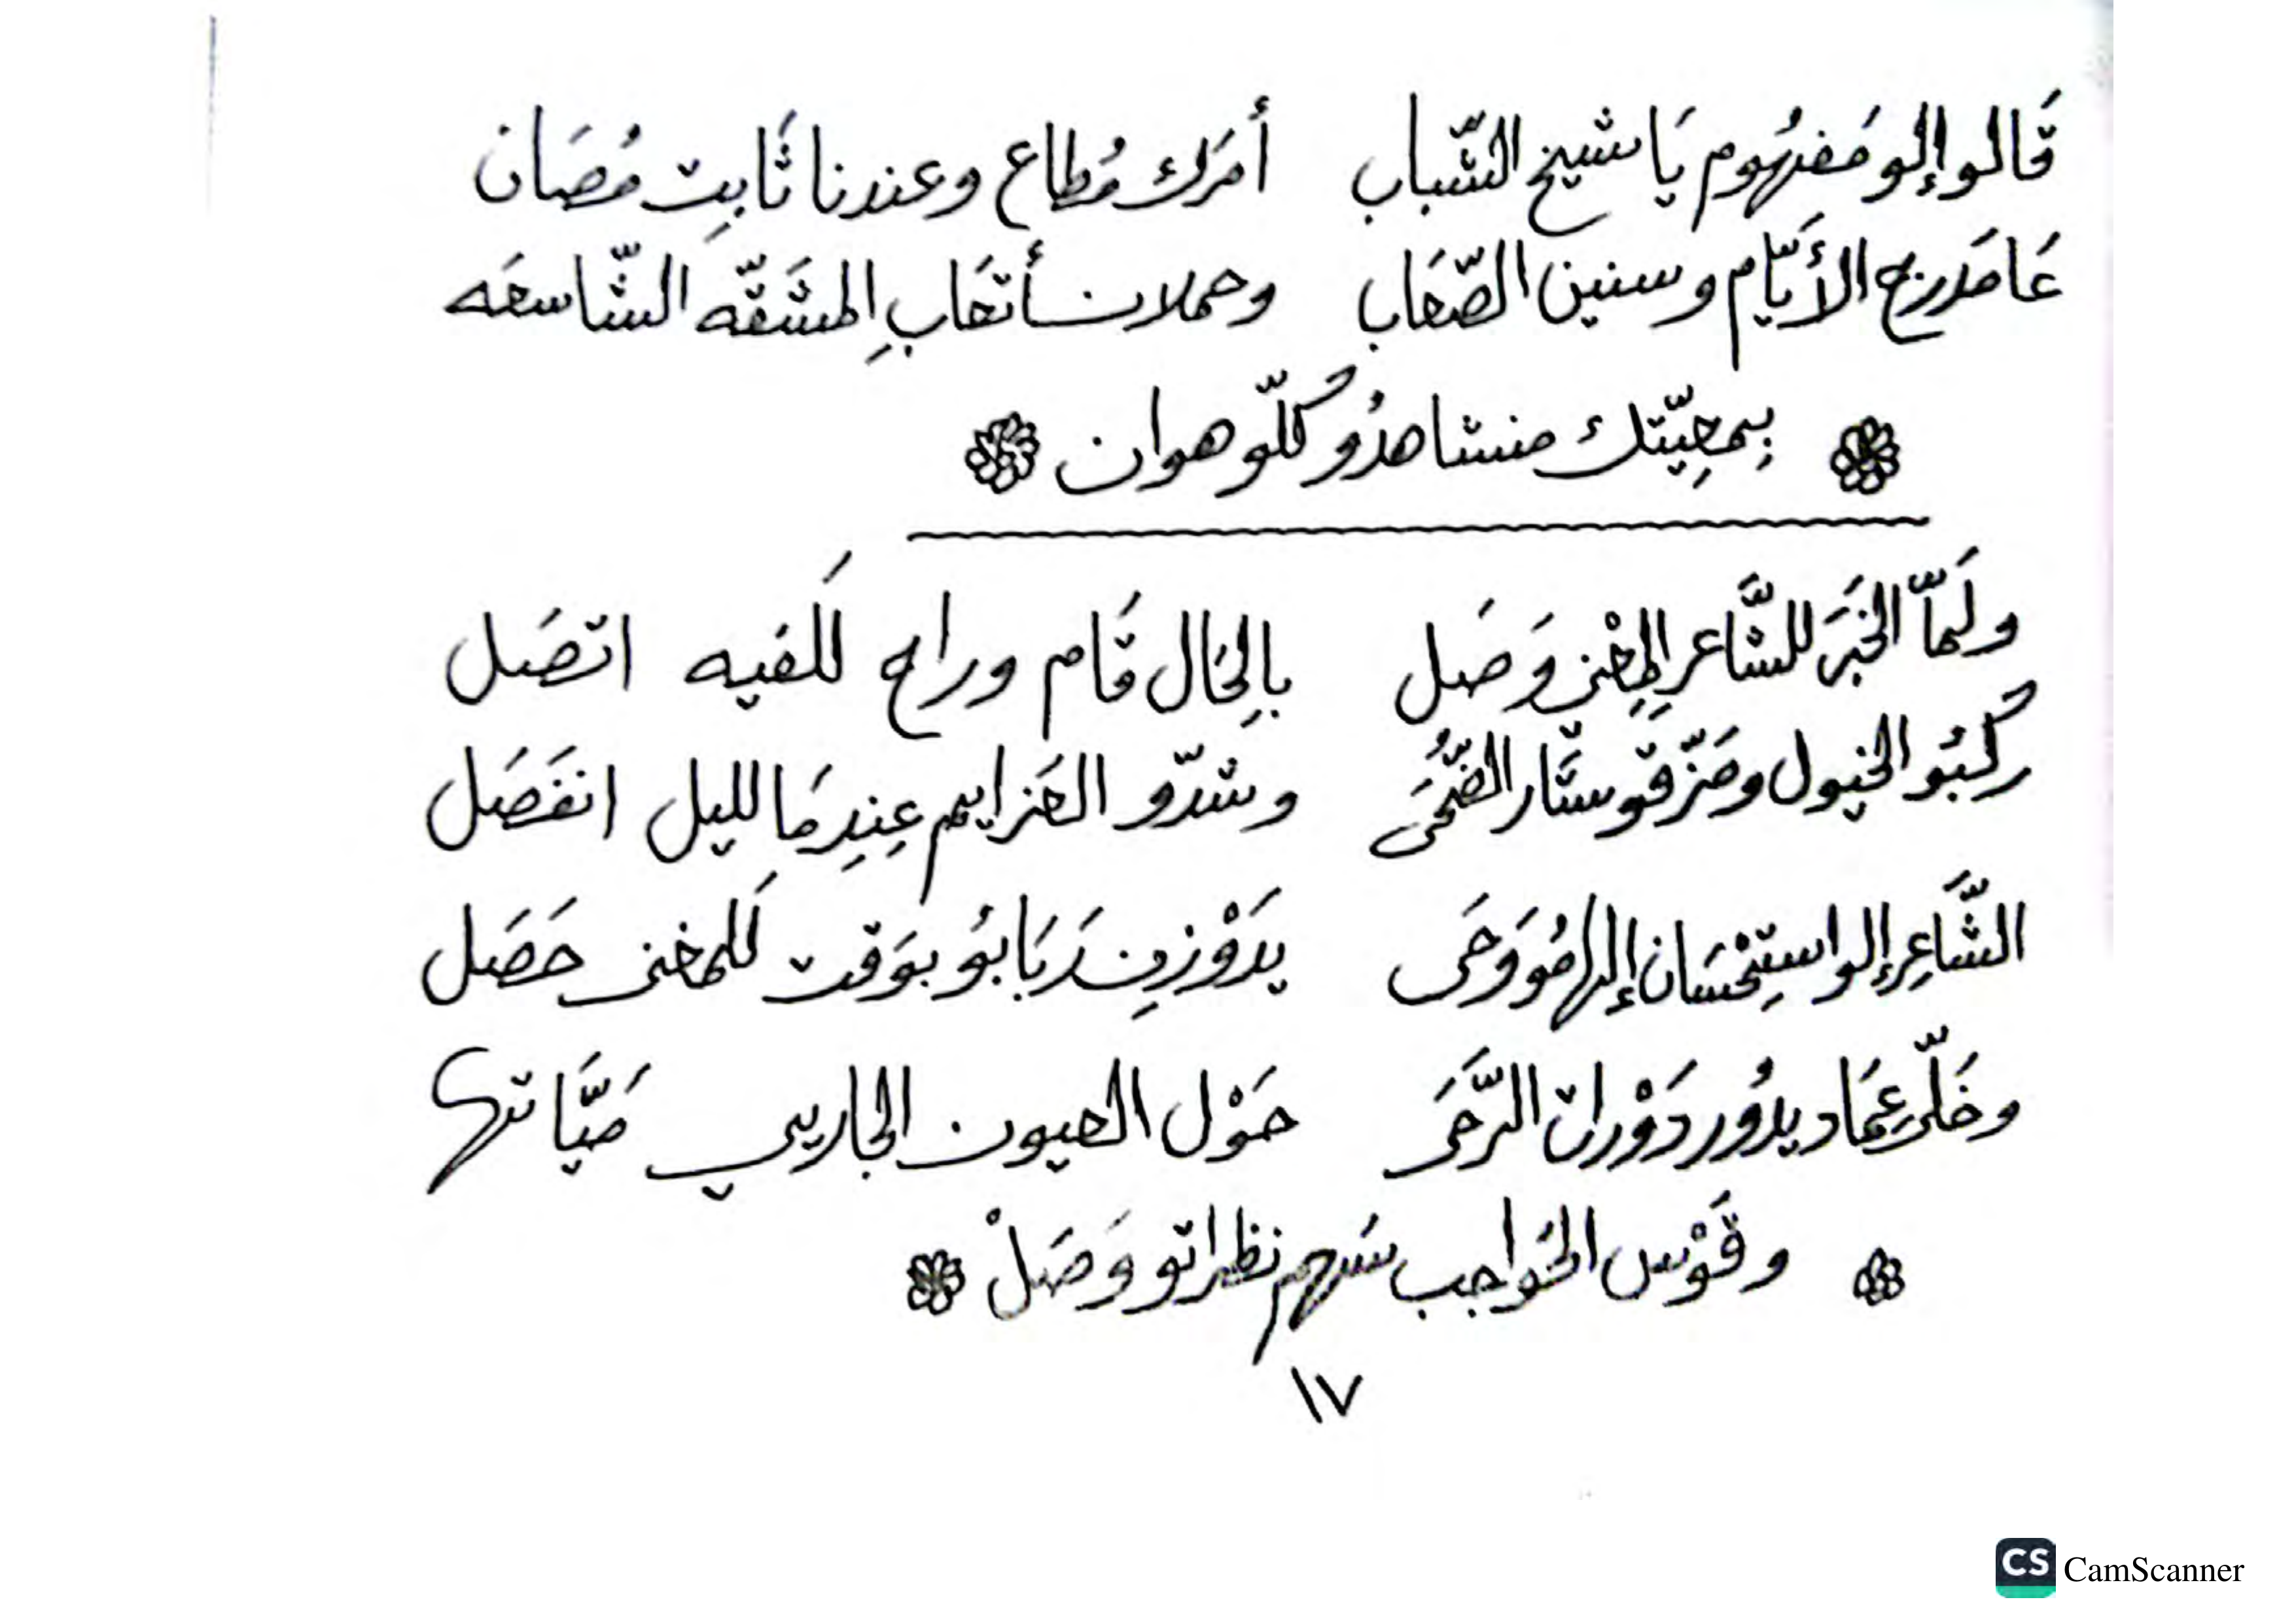 قَالو إلو مَفهُوم يَا شيخ الشّباب أمرَك مُطاع وعندنا ثَابِت مُصَان
عَا مَدرج الأيَّام وسنين الصّعَاب وحملان أتعَابِ المشَقّه الشّاسعَه
بِمعِيّتك منشاهدُو كُلّو هوان
ولَمّا الخبَرَ للشَّاعر المِعْنى وَصَل بالِحَال قَام وراح لَلفيه اتصَل
رُكبُو الخيول ومَزّقو ستَّار الضُّحَى وشدّو العَزايم عِندِمَا لليل انفَصَل
الشَّاعِر إلو استِحْسَان إلهامُو وَحَى يدَوْزِن رَبَابُو بوَقت لَلمغنى حَصَل
وخَلّى عِمَاد يدُور دَوْران الرَّحَى حَوْل العيون الجاريي مَيَّاتها
وقَوْس الحَواجب سَهم نظراتو وَصَلْ
١٧
CS CamScanner